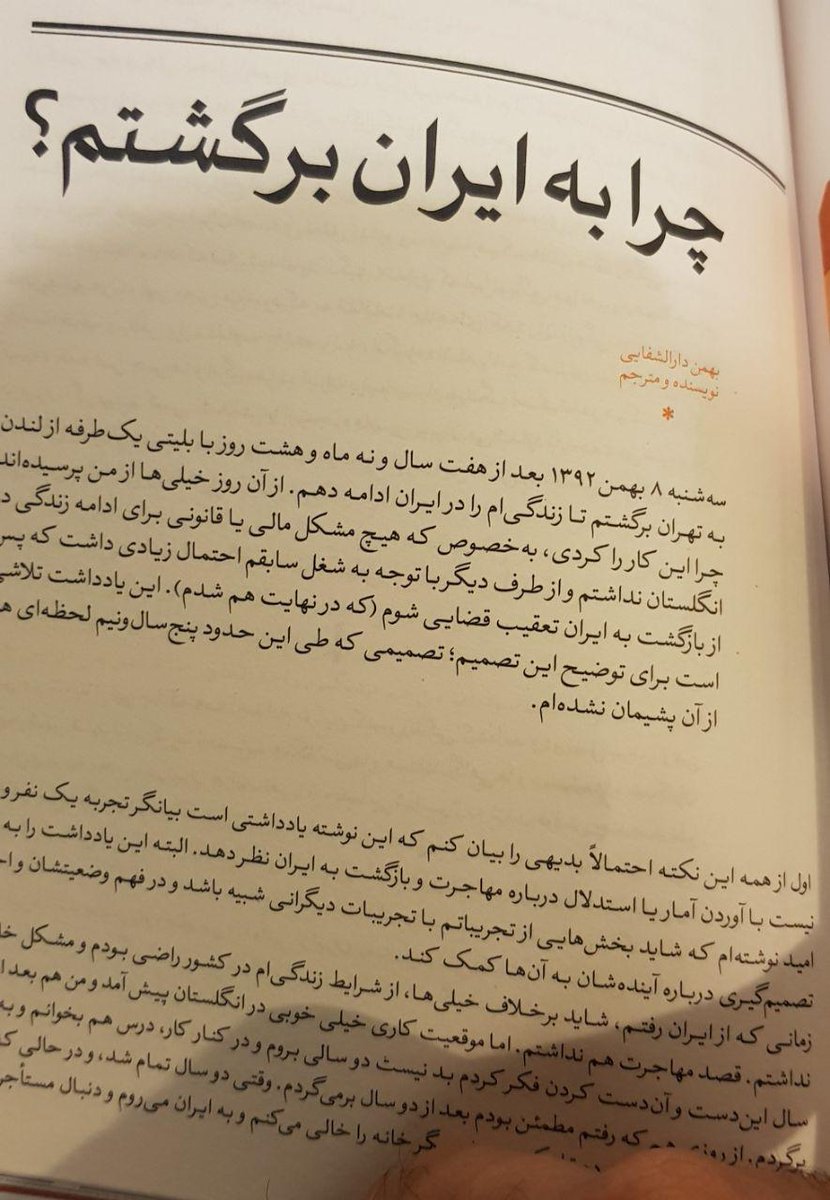 چرا به ایران برگشتم؟
بهمن دارالشفایی
نویسنده و مترجم
*
سه‌شنبه ۸ بهمن ۱۳۹۲ بعد از هفت سال و نه ماه و هشت روز با بلیتی یک‌طرفه از لندن
به تهران برگشتم تا زندگی‌ام را در ایران ادامه دهم. از آن روز خیلی‌ها از من پرسیده‌اند
چرا این کار را کردی، به‌خصوص که هیچ مشکل مالی یا قانونی برای ادامه زندگی د
انگلستان نداشتم و از طرف دیگر با توجه به شغل سابقم احتمال زیادی داشت که پس
از بازگشت به ایران تعقیب قضایی شوم (که در نهایت هم شدم). این یادداشت تلاشی
است برای توضیح این تصمیم؛ تصمیمی که طی این حدود پنج‌سال‌ونیم لحظه‌ای ه
از آن پشیمان نشده‌ام.
اول از همه این نکته احتمالاً بدیهی را بیان کنم که این نوشته یادداشتی است بیانگر تجربه یک نفر و
نیست با آوردن آمار یا استدلال درباره مهاجرت و بازگشت به ایران نظر دهد. البته این یادداشت را به
امید نوشته‌ام که شاید بخش‌هایی از تجربیاتم با تجربیات دیگرانی شبیه باشد و در فهم وضعیتشان و اح
تصمیم‌گیری درباره آینده‌شان به آن‌ها کمک کند.
زمانی که از ایران رفتم، شاید برخلاف خیلی‌ها، از شرایط زندگی‌ام در کشور راضی بودم و مشکل خا
نداشتم. قصد مهاجرت هم نداشتم. اما موقعیت کاری خیلی خوبی در انگلستان پیش آمد و من هم بعد ا
سال این‌دست و آن‌دست کردن فکر کردم بد نیست دو سالی بروم و در کنار کار، درس هم بخوانم و به
برگردم. از روزی هم که رفتم مطمئن بودم بعد از دو سال برمی‌گردم. وقتی دو سال تمام شد، و در حالی که
گر خانه را خالی می‌کنم و به ایران می‌روم و دنبال مستأجر